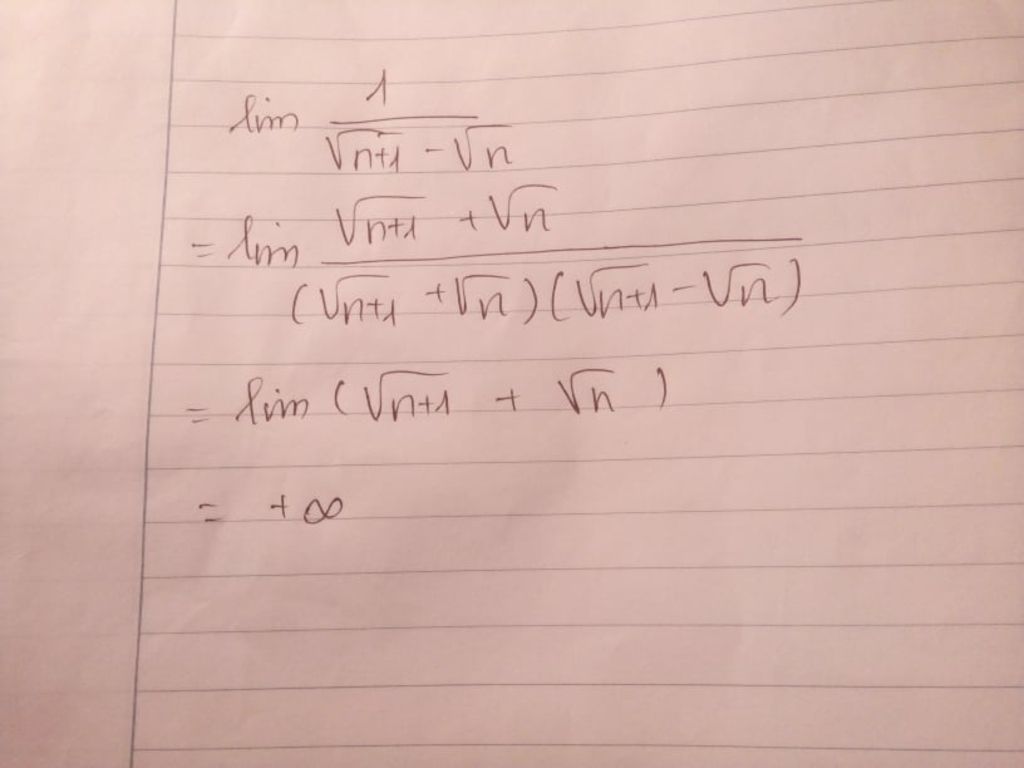 lim 1/(√(n+1) - √n)
= lim (√(n+1) + √n)/((√(n+1) + √n)(√(n+1) - √n))
= lim (√(n+1) + √n)
= +∞